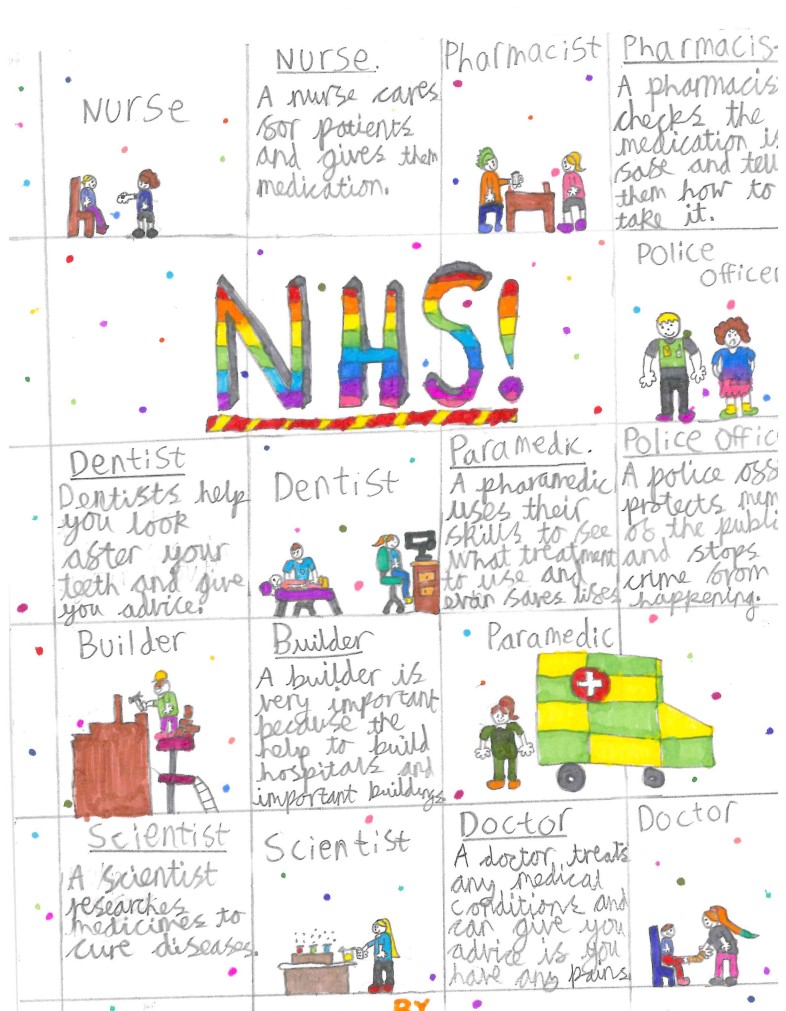 Nurse
Nurse.
A nurse cares
for patients
and gives them
medication.
Pharmacist
Pharmacis
A pharmacis
checks the
medication is
safe and tell
them how to
take it.
NHS!
Police
Officer
Dentist
Dentists help
you look
after your
teeth and give
you advice.
Dentist
Paramedic.
A pharamedic
uses their
skills to see
what treatment
to use and
evan saves lifes
Police Offic
A police off
protects mem
of the publi
and stops
crime from
happening.
Builder
Builder
A builder is
very important
because the
help to build
hospitals and
important buildings
Paramedic
Scientist
A scientist
researches
medicimes to
cure diseases.
Scientist
Doctor
A doctor treats
any medical
conditions and
can give you
advice if you
have any pains
Doctor
BY